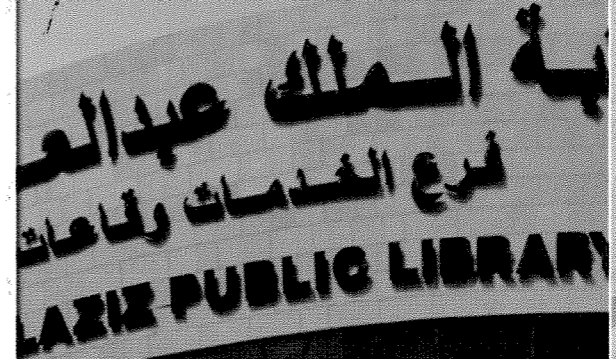 ـبة الملك عبدالعـ
فرع الخدمات وقاعات
LAZIZ PUBLIC LIBRARY